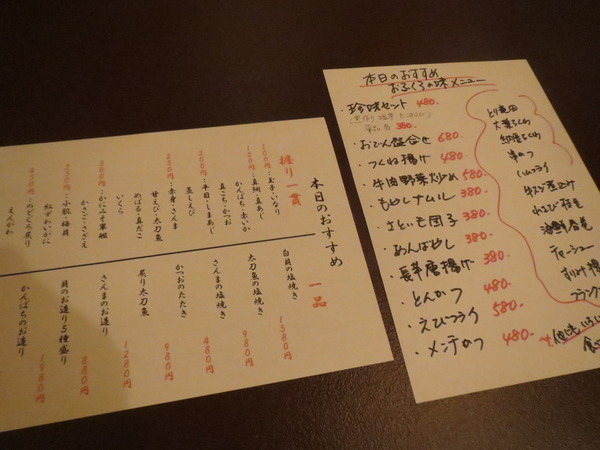 本日のおすすめ
握り一貫
100円:玉子・いなり
150円:真鯛・真あじ
真こち・かつお
かんぱち・赤いか
200円:平目・しまあじ
蒸しえび
250円:赤身・さんま
甘えび・太刀魚
めばる・真だこ
いくら
300円:かにみそ軍艦
かさご・さざえ
350円:小肌・梅貝
紅ずわいがに
450円:のどぐろ炙り
えんがわ
一品
白貝の塩焼き
1580円
太刀魚の塩焼き
980円
さんまの塩焼き
480円
かつおのたたき
980円
炙り太刀魚
1280円
さんまのお造り
880円
貝のお造り5種盛り
1980円
かんぱちのお造り
本日のおすすめ
おふくろの味メニュー
・珍味セット 480-
380-
・おでん盛合せ 680-
・つくね揚げ 480-
・牛肉野菜炒め 680-
・もやしナムル 380-
・さといも団子 380-
・あんばやし 380-
・長芋唐揚げ 380-
・とんかつ 480-
・えびフライ 580-
・メンチかつ 480-
大葉ちくわ
串かつ
ハムフライ
わさび枝豆
海鮮春巻